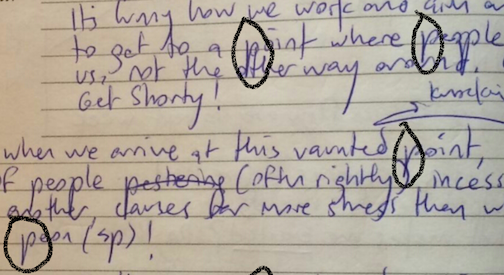 It's funny how we work and aim
to get to a point where people
us, not the other way around.
Get Shorty!
when we arrive at this vaunted point,
of people pestering (often rightly)
another, causes far more stress than
poor (sp)!